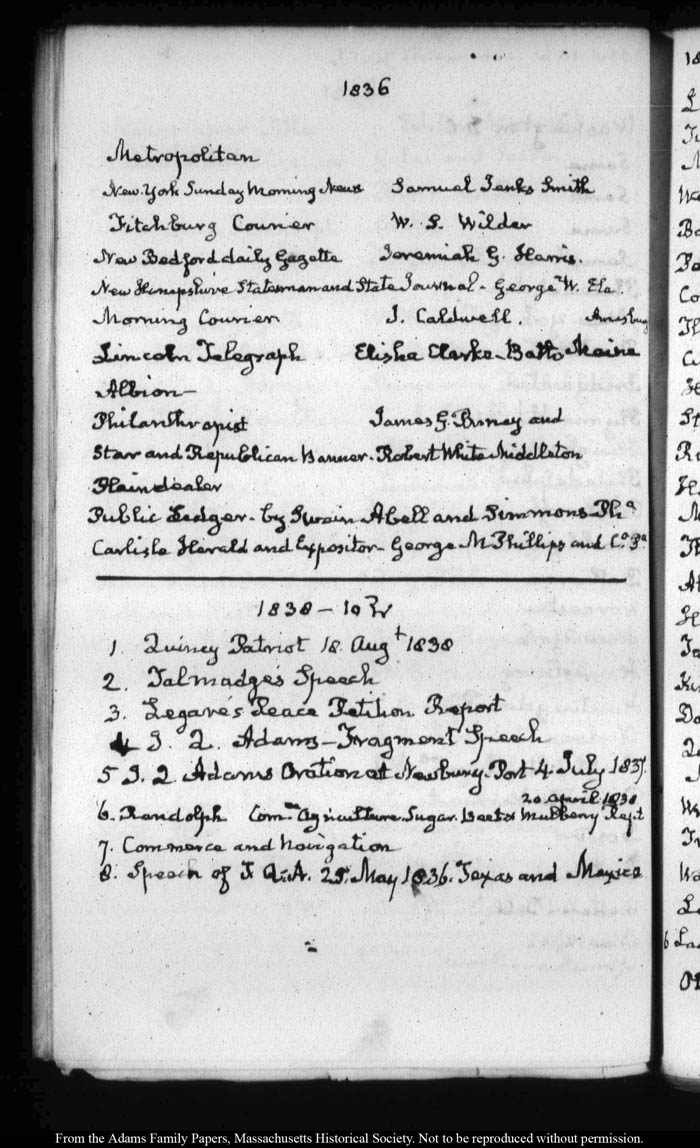 1836
Metropolitan
New York Sunday Morning News Samuel Jenks Smith
Fitchburg Courier W. S. Wilder
New Bedford daily Gazette Jeremiah G. Harris.
New Hampshire Statesman and State Journal - George W. Ela
Morning Courier J. Caldwell.
Lincoln Telegraph Elisha Clarke - Bath Maine
Albion -
Philanthropist James G. Birney and
Star and Republican Banner - Robert White Middleton
Plaindealer
Public Ledger - by Swain Abell and Simmons - Pha
Carlisle Herald and Expositor - George M Phillips and Co. Pa
1838 -
1. Quincy Patriot 18. Augt 1838
2. Talmadge's Speech
3. Legare's Peace Petition Report
4 J. Q. Adams - Fragment Speech
5 J. Q. Adams Oration at Newbury-Port 4. July 1837.
20 April 1838
6. Randolph Comee Agriculture Sugar. Beet & Mulberry Rept
7. Commerce and Navigation
8. Speech of J Q. A. 25. May 1836. Texas and Mexico
From the Adams Family Papers, Massachusetts Historical Society. Not to be reproduced without permission.